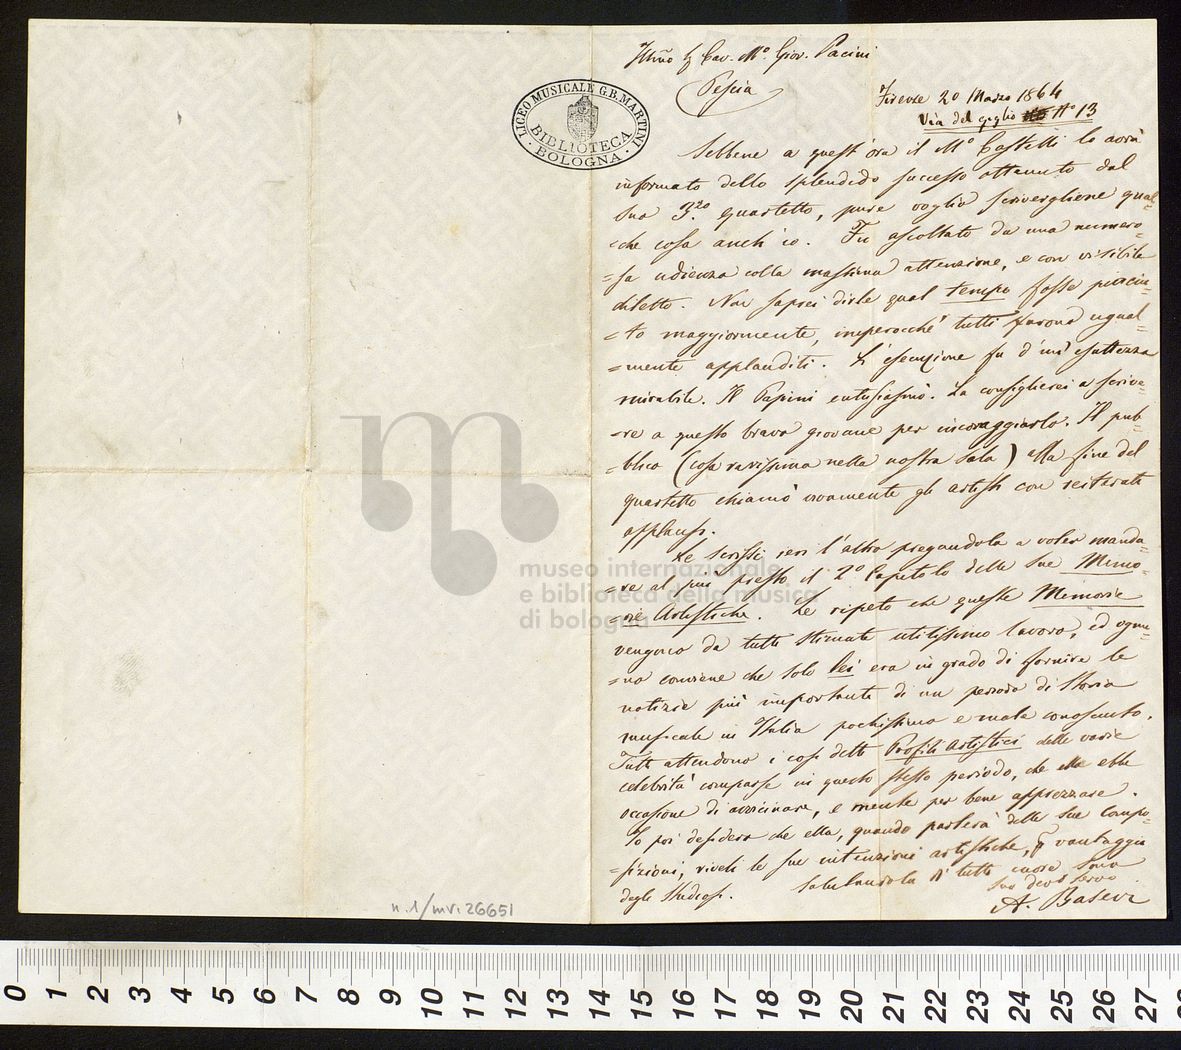 Illmo Sig Cav. Mo. Giov. Pacini
Pescia
Firenze 20 Marzo 1864
Via del giglio No 13
LICEO MUSICALE G.B. MARTINI
BIBLIOTECA
BOLOGNA
Sebbene a quest'ora il Mo Castelli lo avrà
informato dello splendido successo ottenuto dal
suo 3.zo quartetto, pure voglio scrivergliene qual=
=che cosa anch'io. Fu ascoltato da una numero=
=sa udienza colla massima attenzione, e con visibile
diletto. Non saprei dirle qual tempo fosse piaciu=
=to maggiormente, imperocchè tutti furono ugual=
=mente applauditi. L'esecuzione fu d'un'esattezza
mirabile. Il Papini entusiasmò. La consiglierei a scrive=
=re a questo bravo giovane per incoraggiarlo. Il pub=
=blico (cosa rarissima nella nostra sala) alla fine del
quartetto chiamò vivamente gli artisti con reiterati
applausi.
Le scrissi ieri l'altro pregandola a voler manda=
=re al più presto il 2o Capitolo delle sue Memo=
=rie Artistiche. Le ripeto che queste Memorie
vengono da tutti stimate utilissimo lavoro, ed ognu=
=no conviene che solo Lei era in grado di fornire le
notizie più importanti di un periodo di Storia
musicale in Italia pochissimo e male conosciuto.
Tutti attendono i così detti Profili Artistici delle varie
celebrità comparse in questo stesso periodo, che ella ebbe
occasione di avvicinare, e mente per bene apprezzare.
Io poi desidero che ella, quando parlerà delle sue compo=
=sizioni, riveli le sue intenzioni artistiche, a vantaggio
degli studiosi. Salutandola di tutto cuore sono
Suo devo servo
A. Basevi
museo internazionale
e biblioteca della musica
di bologna
n.1/mv: 26651
0 1 2 3 4 5 6 7 8 9 10 11 12 13 14 15 16 17 18 19 20 21 22 23 24 25 26 27